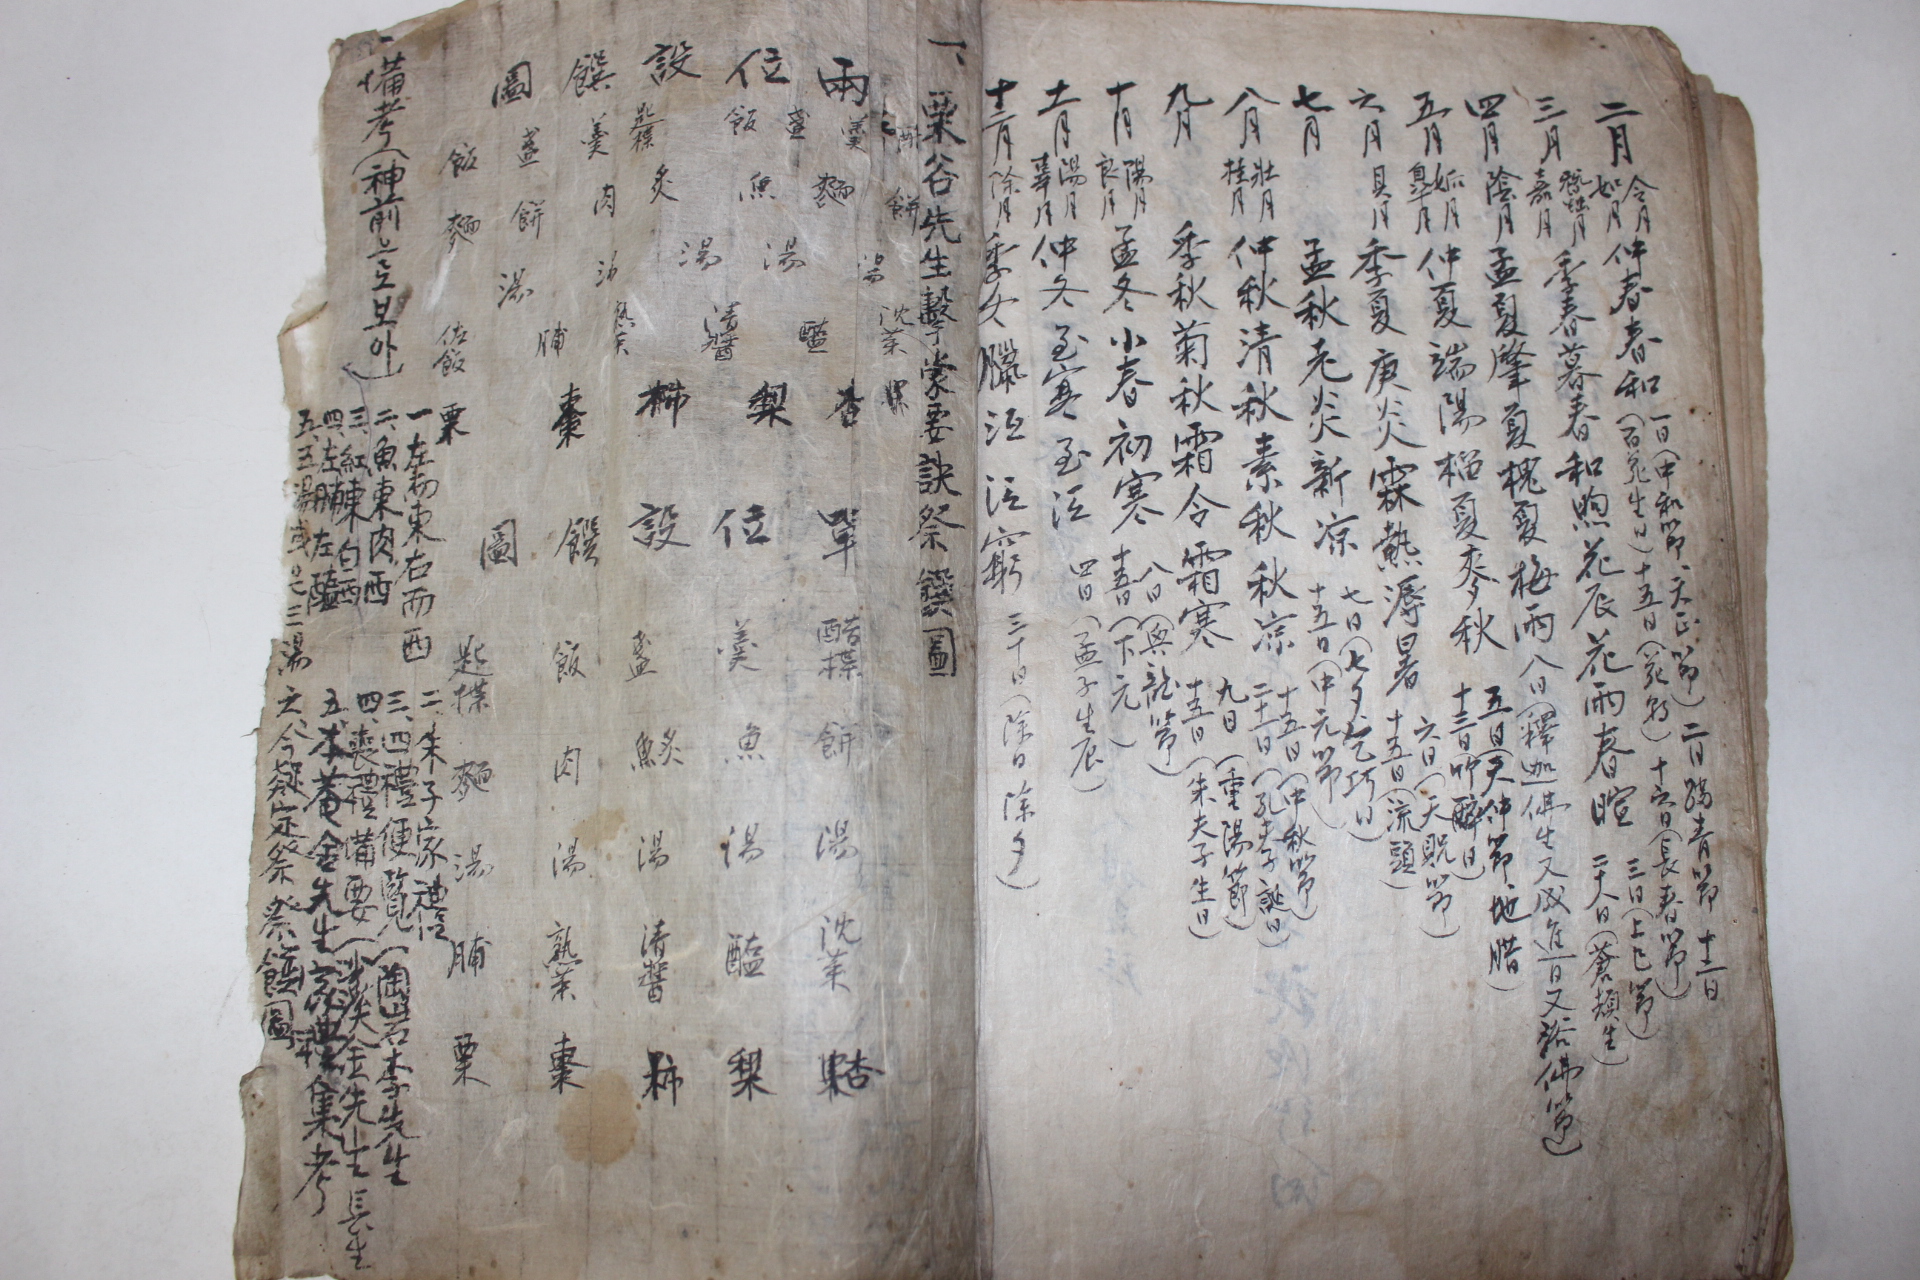 二月 令月 如月 仲春 春和 一日(中和節、天正節) 二日 踏青節 十二日
(百花生日) 十五日(花朝) 十六日(長春節)
三月 嘉月 季春 暮春 和煦 花辰 花雨 春暄 三日(上巳節)
二十八日(蒼頡生)
四月 陰月 孟夏 肇夏 槐夏 梅雨 八日(釋迦佛生又成道日又浴佛節)
五月 姤月 皐月 仲夏 端陽 榴夏 麥秋 五日(天中節 地腊)
十三日 竹醉日
六月 且月 季夏 庚炎 霖熱 溽暑 六日(天貺節)
十五日(流頭)
七月 孟秋 老炎 新凉 七日(七夕 乞巧日)
十五日(中元節)
八月 壯月 桂月 仲秋 清秋 素秋 秋凉 十五日(中秋節)
二十七日(孔夫子誕日)
九月 季秋 菊秋 霜令 霜寒 九日(重陽節)
十五日(朱夫子生日)
十月 陽月 良月 孟冬 小春 初寒 八日(興龍節)
十五日(下元)
十一月 暢月 辜月 仲冬 至寒 至沍 四日(孟子生辰)
十二月 除月 季冬 臘沍 沍窮 三十日(除日 除夕)
一、栗谷先生擊蒙要訣祭饌圖
兩 位 設 饌 圖
羹 盞 飯 匙楪 羹 盞 飯
餠 麵 魚 炙 肉 餠 麵
湯 湯 湯 湯 湯
沈菜 醢 清醬 熟菜 脯 佐飯
果 杏 梨 柿 棗 栗
單 位 設 饌 圖
醋楪 羹 盞 飯 匙楪
餠 魚 炙 肉 麵
湯 湯 湯 湯 湯
沈菜 醢 清醬 熟菜 脯
杏 梨 柿 棗 栗
一、備考(神前으로보아)
一、左東右西
二、魚東肉西
三、紅東白西
四、左脯左醢
五、五湯或은三湯
二、朱子家禮
三、四禮便覽(陶菴李先生
四、喪禮備要(沙溪金先生長生
五、本菴金先生
之、今擬定祭祭饌圖